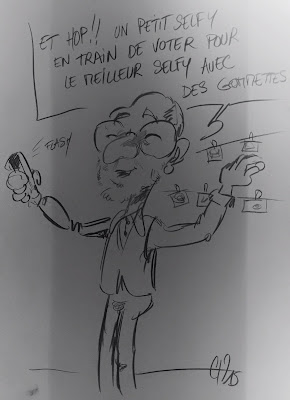 ET HOP!! UN PETIT SELFY
EN TRAIN DE VOTER POUR
LE MEILLEUR SELFY AVEC
DES GOMMETTES
FLASH